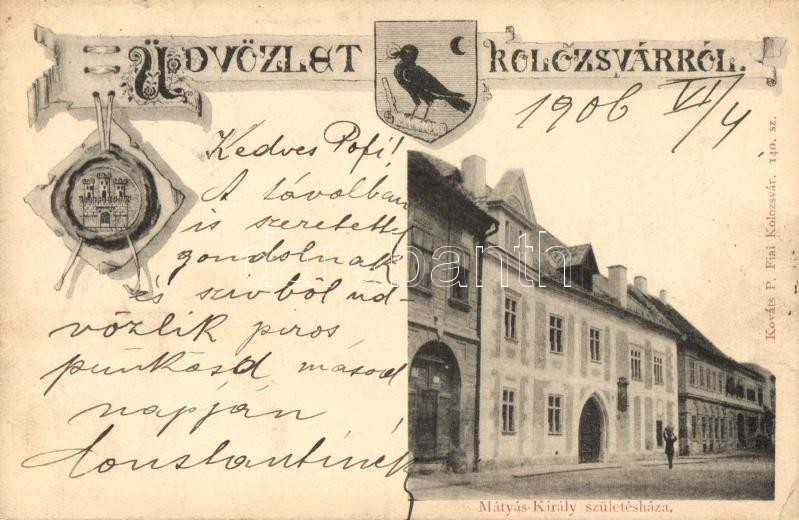 ÜDVÖZLET KOLOZSVÁRRÓL.
1906 VI/4
Kedves Pofi!
A távolban
is szeretettel
gondolnak
és szivből üd-
vözlik piros
punkösd másod
napján
Konstantinék
darabanth
Mátyás-Király születésháza.
Kováts P. Fiai Kolozsvár. 140. sz.